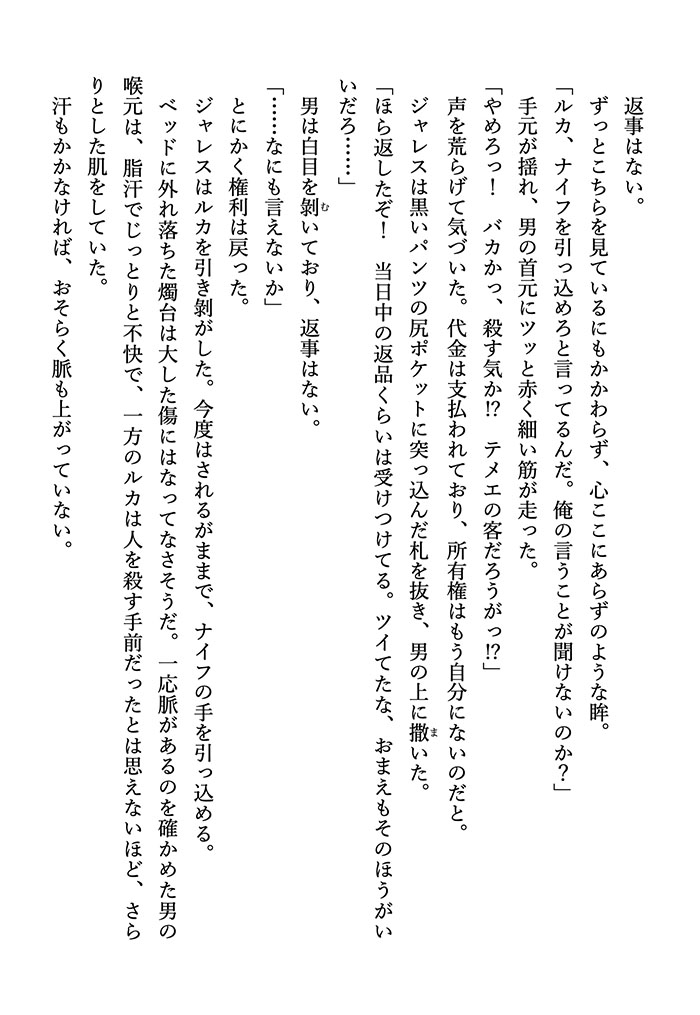 返事はない。
ずっとこちらを見ているにもかかわらず、心ここにあらずのような眸。
「ルカ、ナイフを引っ込めろと言ってるんだ。俺の言うことが聞けないのか？」
手元が揺れ、男の首元にツッと赤く細い筋が走った。
「やめろっ！　バカかっ、殺す気か!?　テメエの客だろうがっ!?」
声を荒らげて気づいた。代金は支払われており、所有権はもう自分にないのだと。
ジャレスは黒いパンツの尻ポケットに突っ込んだ札を抜き、男の上に撒いた。
「ほら返したぞ！　当日中の返品くらいは受けつけてる。ツイてたな、おまえもそのほうがい
いだろ……」
男は白目を剝いており、返事はない。
「……なにも言えないか」
とにかく権利は戻った。
ジャレスはルカを引き剝がした。今度はされるがままで、ナイフの手を引っ込める。
ベッドに外れ落ちた燭台は大した傷にはなってなさそうだ。一応脈があるのを確かめた男の
喉元は、脂汗でじっとりと不快で、一方のルカは人を殺す手前だったとは思えないほど、さら
りとした肌をしていた。
汗もかかなければ、おそらく脈も上がっていない。